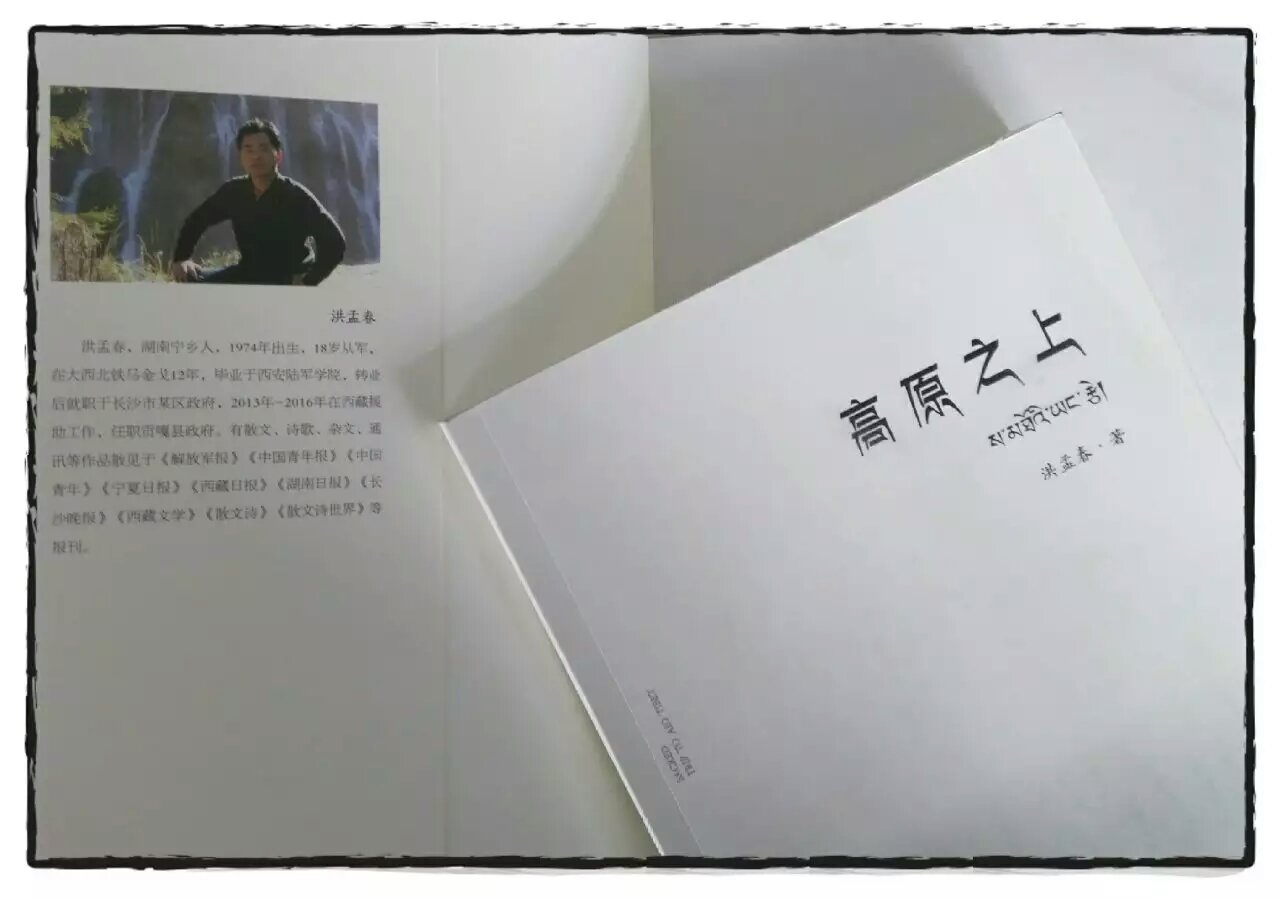 洪孟春
洪孟春，湖南宁乡人，1974年出生，18岁从军，
在大西北铁马金戈12年，毕业于西安陆军学院，转业
后就职于长沙市某区政府，2013年-2016年在西藏援
助工作，任职贡嘎县政府。有散文、诗歌、杂文、通
讯等作品散见于《解放军报》《中国青年报》《中国
青年》《宁夏日报》《西藏日报》《湖南日报》《长
沙晚报》《西藏文学》《散文诗》《散文诗世界》等
报刊。
高原之上
ས་མཐོའི་ཡང་རྩེ།
洪孟春·著
SACRED
TRIP TO AID TIBET